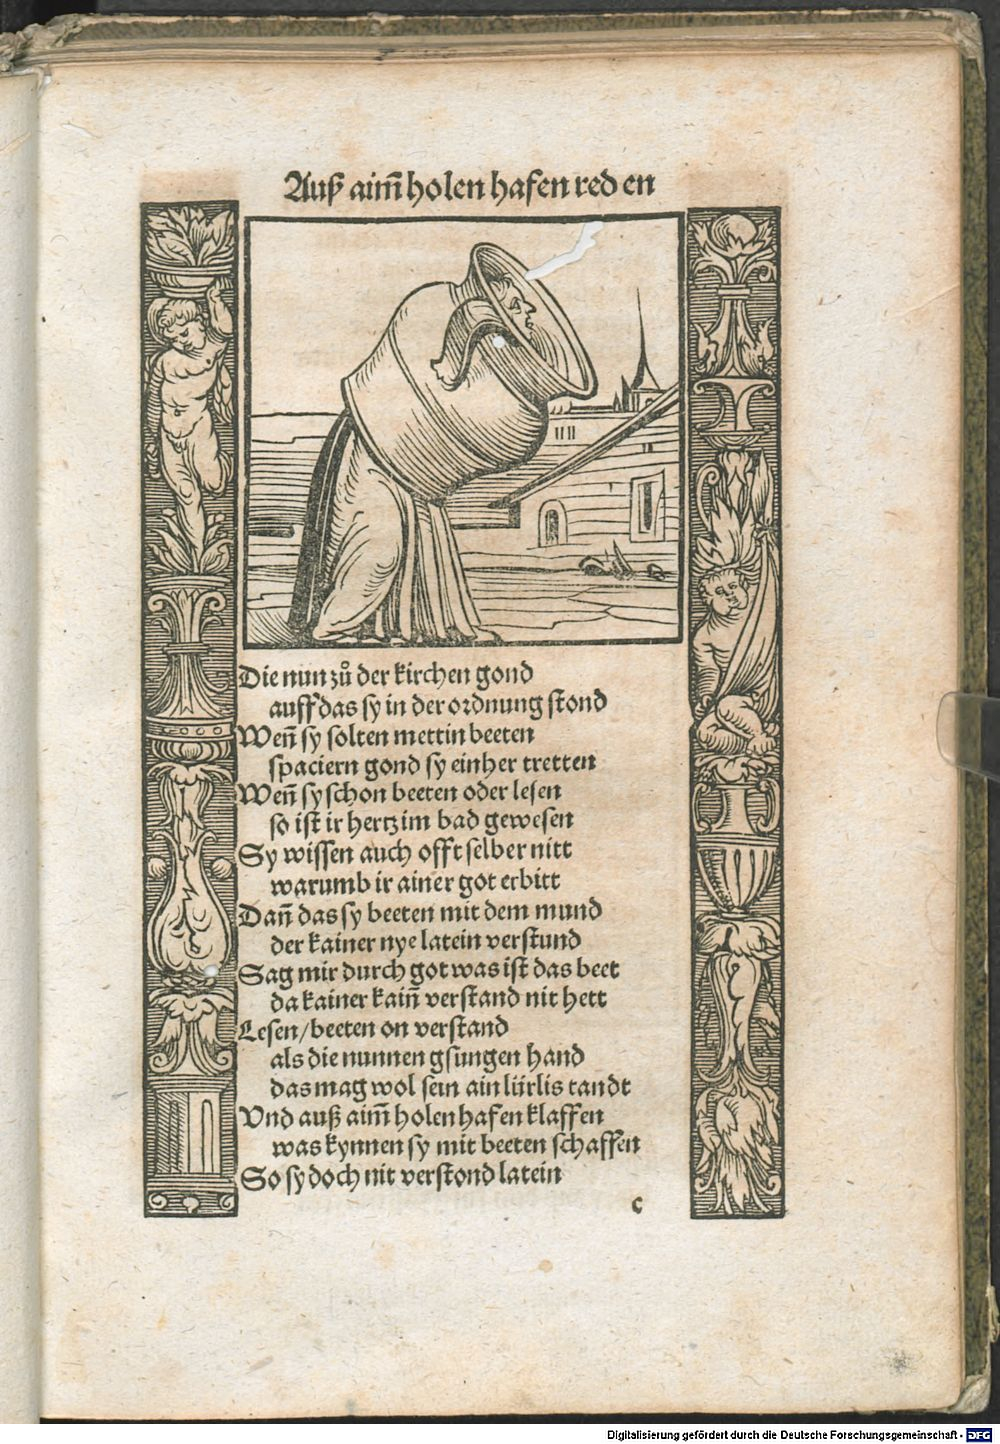 Auß aim̃ holen hafen red en
Die nun zů der kirchen gond
auff das sy in der ordnung stond
Wen̄ sy solten mettin beeten
spaciern gond sy einher tretten
Wen̄ sy schon beeten oder lesen
so ist ir hertz im bad gewesen
Sy wissen auch offt selber nitt
warumb ir ainer got erbitt
Dan̄ das sy beeten mit dem mund
der kainer nye latein verstund
Sag mir durch got was ist das beet
da kainer kain̄ verstand nit hett
Lesen/beeten on verstand
als die nunnen gsungen hand
das mag wol sein ain lürlis tandt
Vnd auß aim̃ holen hafen klaffen
was kynnen sy mit beeten schaffen
So sy doch nit verstond latein
c
Digitalisierung gefördert durch die Deutsche Forschungsgemeinschaft - DFG